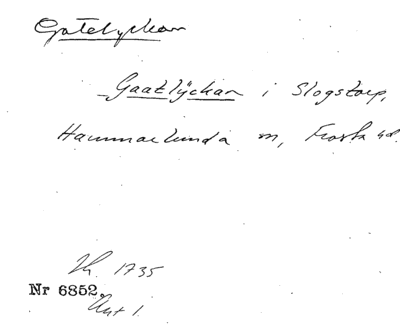 Gatelyckan
Gaatlÿckan i Slogstorp,
Hammarlunda sn, Frosta hd.
Lh. 1735
Nr 6852.
Akt 1.